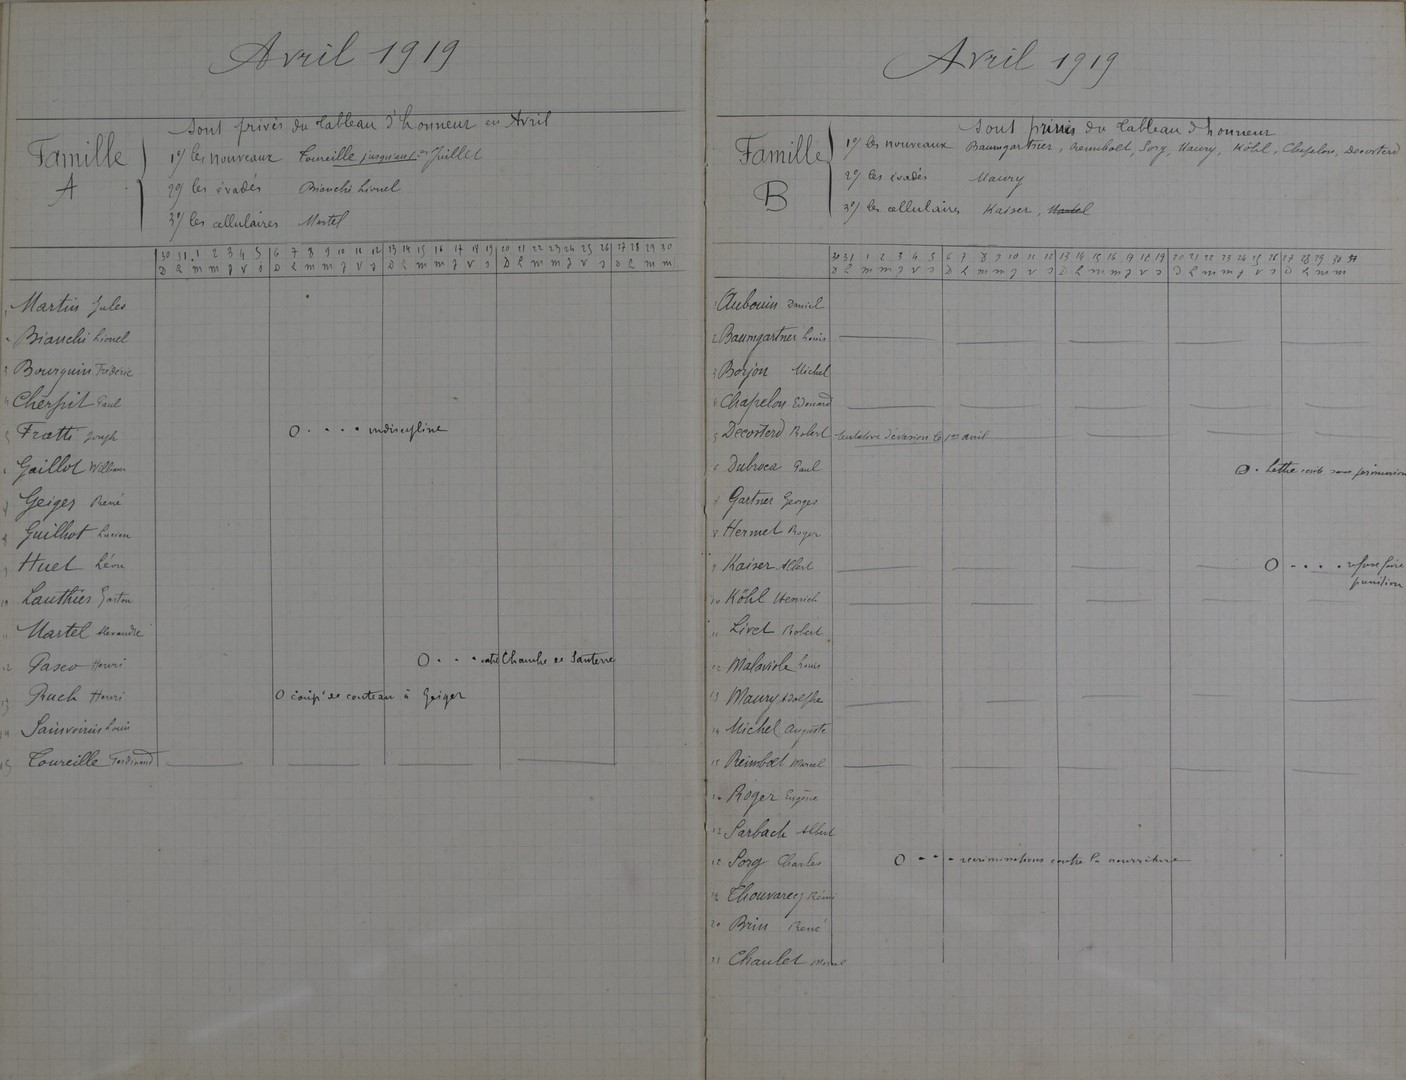 Avril 1919
Sont privés du tableau d'honneur en Avril
Famille A
1º/ les nouveaux Toureille jusqu'au 1er Juillet
2º/ les évadés Bianchi Lionel
3º/ les cellulaires Martel
30 31 1 2 3 4 5 6 7 8 9 10 11 12 13 14 15 16 17 18 19 20 21 22 23 24 25 26 27 28 29 30
D L m m J V S D L m m J V S D L m m J V S D L m m J V S D L m m
1 Martin Jules
2 Bianchi Lionel
3 Bourquin Frédéric
4 Cherpit Paul
5 Fratti Joseph O · · · · indiscipline
6 Gaillot William
7 Geiger René
8 Guilhot Lucien
9 Huet Léon
10 Lauthiés Gaston
11 Martel Alexandre
12 Pasco Henri O · · · · Chambre de
13 Ruch Henri O coup de couteau à Geiger
14 Louis
15 Toureille Ferdinand
Avril 1919
Sont privés du tableau d'honneur
Famille B
1º/ les nouveaux Baumgartner, Reimbolt, Sorg, Maury, Köhl, Chapelon, Decosterd
2º/ les évadés Maury
3º/ les cellulaires Kaiser, Martel
30 31 1 2 3 4 5 6 7 8 9 10 11 12 13 14 15 16 17 18 19 20 21 22 23 24 25 26 27 28 29 30 31
D L m m J V S D L m m J V S D L m m J V S D L m m J V S D L m m
1 Aubouin Daniel
2 Baumgartner Louis
3 Borjon Michel
4 Chapelon Edouard
5 Decosterd Robert tentative d'évasion le 1er avril
6 Dubroca Paul O · Lettre écrite sans permission
7 Gartner Georges
8 Hermet Roger
9 Kaiser Albert O · · · · refuse faire punition
10 Köhl Henrich
11 Livet Robert
12 Malaviole Louis
13 Maury Adolphe
14 Michel Auguste
15 Reimbolt Marcel
16 Roger Eugène
17 Sarbach Albert
18 Sorg Charles O · · · · récriminations contre la nourriture
19 Thouvarecq Rémi
20 Brin René
21 Chaulet